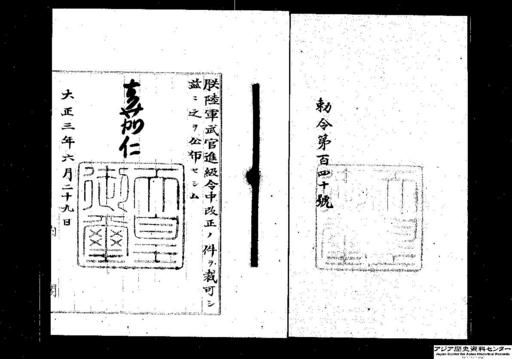 勅令第百四十號
朕陸軍武官進級令中改正ノ件ヲ裁可シ
茲ニ之ヲ公布セシム
嘉仁
天皇
御璽
大正三年六月二十九日
アジア歴史資料センター
Japan Center for Asian Historical Records